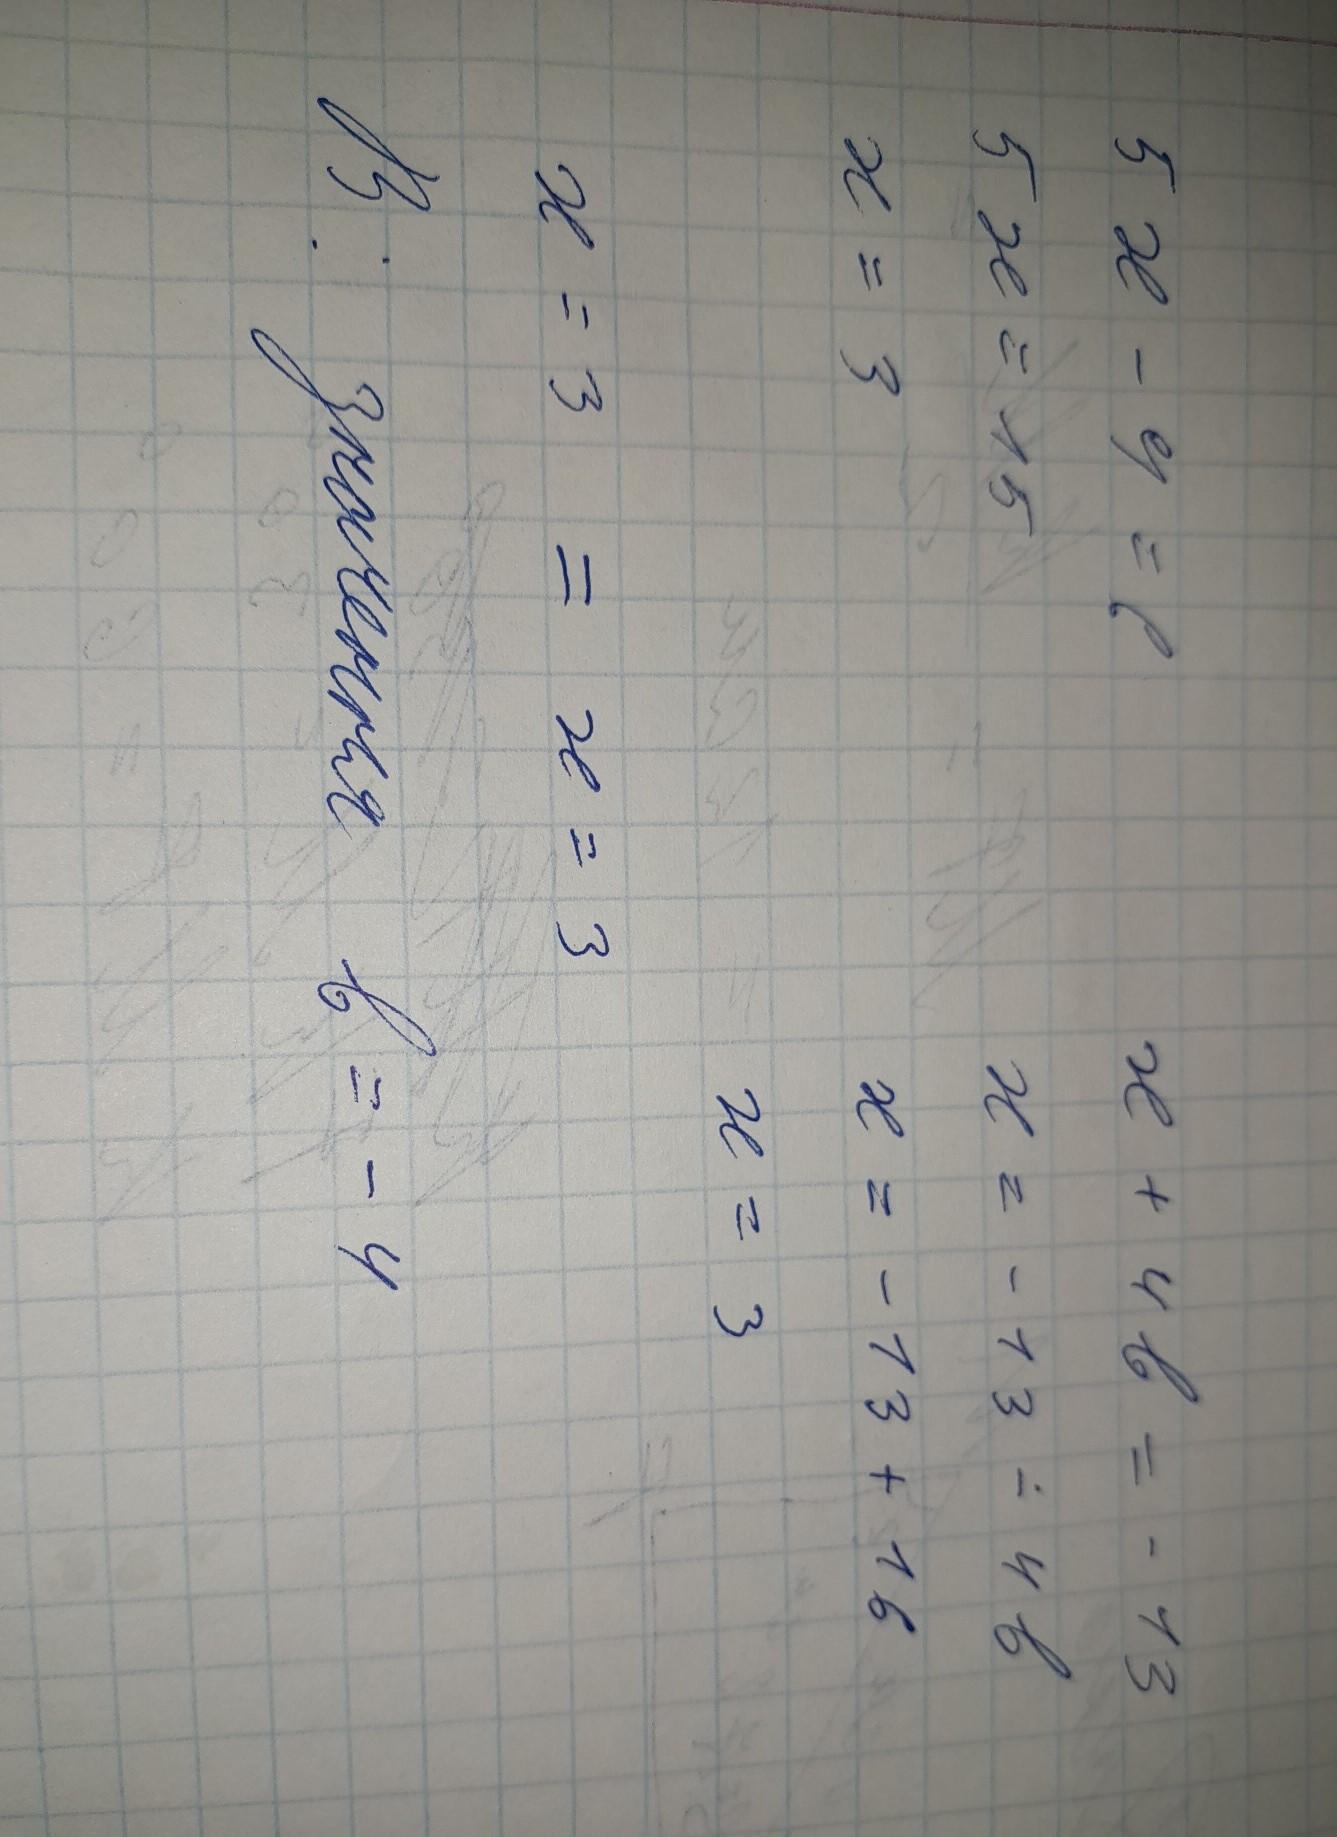 5x - 9 = 6
x + 4b = -13
5x = 15
x = -13 - 4b
x = 3
x = -13 + 16
x = 3
x = 3 = x = 3
В: значення b = -4